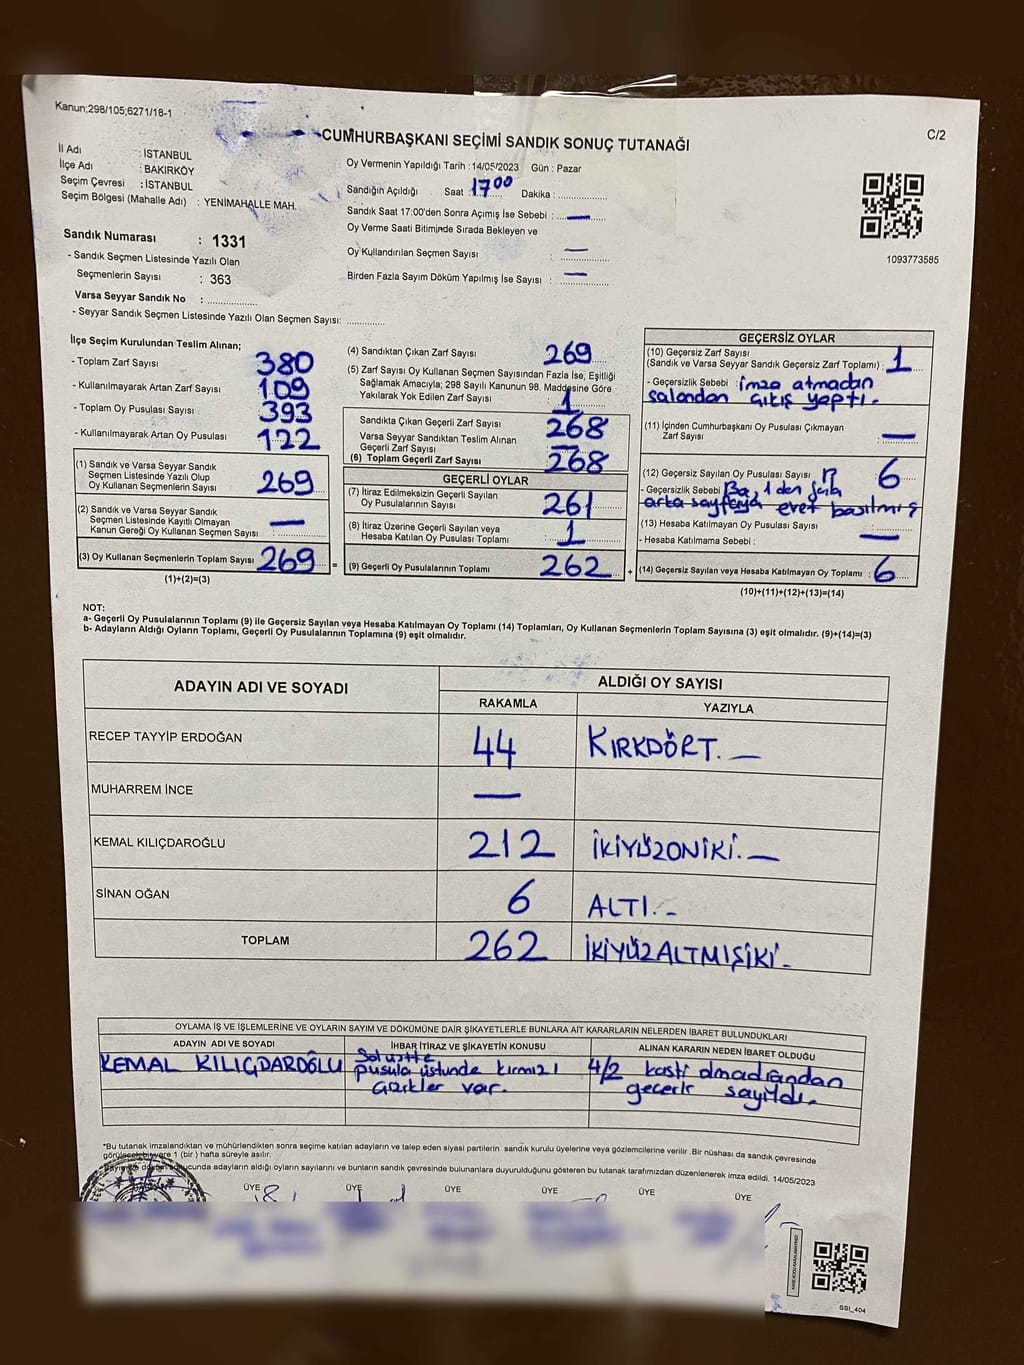 Kanun;298/105;6271/18-1
C/2
CUMHURBAŞKANI SEÇİMİ SANDIK SONUÇ TUTANAĞI
İl Adı : İSTANBUL
İlçe Adı : BAKIRKÖY
Seçim Çevresi : İSTANBUL
Seçim Bölgesi (Mahalle Adı) : YENİMAHALLE MAH.
Oy Vermenin Yapıldığı Tarih :14/05/2023 Gün : Pazar
Sandığın Açıldığı Saat : 17 00 Dakika :
Sandık Saat 17:00'den Sonra Açımış İse Sebebi : —
Oy Verme Saati Bitiminde Sırada Bekleyen ve
Oy Kullandırılan Seçmen Sayısı : —
Birden Fazla Sayım Döküm Yapılmış İse Sayısı : —
1093773585
Sandık Numarası : 1331
- Sandık Seçmen Listesinde Yazılı Olan
Seçmenlerin Sayısı : 363
Varsa Seyyar Sandık No :
- Seyyar Sandık Seçmen Listesinde Yazılı Olan Seçmen Sayısı:
İlçe Seçim Kurulundan Teslim Alınan;
- Toplam Zarf Sayısı 380
- Kullanılmayarak Artan Zarf Sayısı 109
- Toplam Oy Pusulası Sayısı 393
- Kullanılmayarak Artan Oy Pusulası 122
(1) Sandık ve Varsa Seyyar Sandık
Seçmen Listesinde Yazılı Olup
Oy Kullanan Seçmenlerin Sayısı 269
(2) Sandık ve Varsa Seyyar Sandık
Seçmen Listesinde Kayıtlı Olmayan
Kanun Gereği Oy Kullanan Seçmen Sayısı : —
(3) Oy Kullanan Seçmenlerin Toplam Sayısı : 269 =
(1)+(2)=(3)
(4) Sandıktan Çıkan Zarf Sayısı 269
(5) Zarf Sayısı Oy Kullanan Seçmen Sayısından Fazla İse, Eşitliği
Sağlamak Amacıyla; 298 Sayılı Kanunun 98. Maddesine Göre
Yakılarak Yok Edilen Zarf Sayısı : 1
Sandıkta Çıkan Geçerli Zarf Sayısı 268
Varsa Seyyar Sandıktan Teslim Alınan
Geçerli Zarf Sayısı —
(6) Toplam Geçerli Zarf Sayısı 268
GEÇERLİ OYLAR
(7) İtiraz Edilmeksizin Geçerli Sayılan
Oy Pusulalarının Sayısı 261
(8) İtiraz Üzerine Geçerli Sayılan veya
Hesaba Katılan Oy Pusulası Toplamı : 1
(9) Geçerli Oy Pusulalarının Toplamı 262 +
GEÇERSİZ OYLAR
(10) Geçersiz Zarf Sayısı
(Sandık ve Varsa Seyyar Sandık Geçersiz Zarf Toplamı) : 1
- Geçersizlik Sebebi : imza atmadan
salondan çıkış yaptı.
(11) İçinden Cumhurbaşkanı Oy Pusulası Çıkmayan
Zarf Sayısı : —
(12) Geçersiz Sayılan Oy Pusulası Sayısı 6
- Geçersizlik Sebebi 1 den fazla
arka sayfaya evet basılmış
(13) Hesaba Katılmayan Oy Pusulası Sayısı : —
- Hesaba Katılmama Sebebi :
(14) Geçersiz Sayılan veya Hesaba Katılmayan Oy Toplamı : 6
(10)+(11)+(12)+(13)=(14)
NOT:
a- Geçerli Oy Pusulalarının Toplamı (9) ile Geçersiz Sayılan veya Hesaba Katılmayan Oy Toplamı (14) Toplamları, Oy Kullanan Seçmenlerin Toplam Sayısına (3) eşit olmalıdır. (9)+(14)=(3)
b- Adayların Aldığı Oyların Toplamı, Geçerli Oy Pusulalarının Toplamına (9) eşit olmalıdır.
ADAYIN ADI VE SOYADI
ALDIĞI OY SAYISI
RAKAMLA YAZIYLA
RECEP TAYYİP ERDOĞAN 44 KIRKDÖRT. —
MUHARREM İNCE —
KEMAL KILIÇDAROĞLU 212 İKİYÜZONİKİ. —
SİNAN OĞAN 6 ALTI. -
TOPLAM 262 İKİYÜZALTMIŞİKİ -
OYLAMA İŞ VE İŞLEMLERİNE VE OYLARIN SAYIM VE DÖKÜMÜNE DAİR ŞİKAYETLERLE BUNLARA AİT KARARLARIN NELERDEN İBARET BULUNDUKLARI
ADAYIN ADI VE SOYADI İHBAR İTİRAZ VE ŞİKAYETİN KONUSU ALINAN KARARIN NEDEN İBARET OLDUĞU
KEMAL KILIÇDAROĞLU pusula üstünde kırmızı çizikler var. 4/2 kasti olmadığından
geçerli sayıldı.
*Bu tutanak imzalandıktan ve mühürlendikten sonra seçime katılan adayların ve talep eden siyasi partilerin sandık kurulu üyelerine veya gözlemcilerine verilir .Bir nüshası da sandık çevresinde
görülecek bir yere 1 (bir ) hafta süreyle asılır.
sonucunda adayların aldığı oyların sayılarını ve bunların sandık çevresinde bulunanlara duyurulduğunu gösteren bu tutanak tarafımızdan düzenlenerek imza edildi. 14/05/2023
ÜYE ÜYE ÜYE ÜYE ÜYE ÜYE
SSI_404